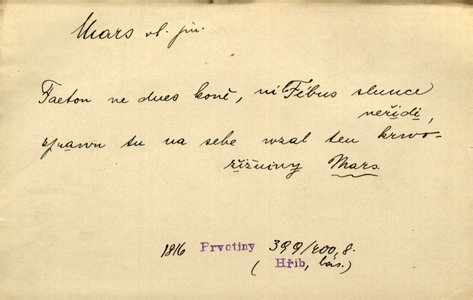 Mars vl. jm.
Faeton ne dnes koně, nil Fébus slunce
neřídí,
zprawu tu na sebe wzal ten krwo-
žížniwy Mars.
1816 Prvotiny 399/400, 8.
(Hřib, bás.)